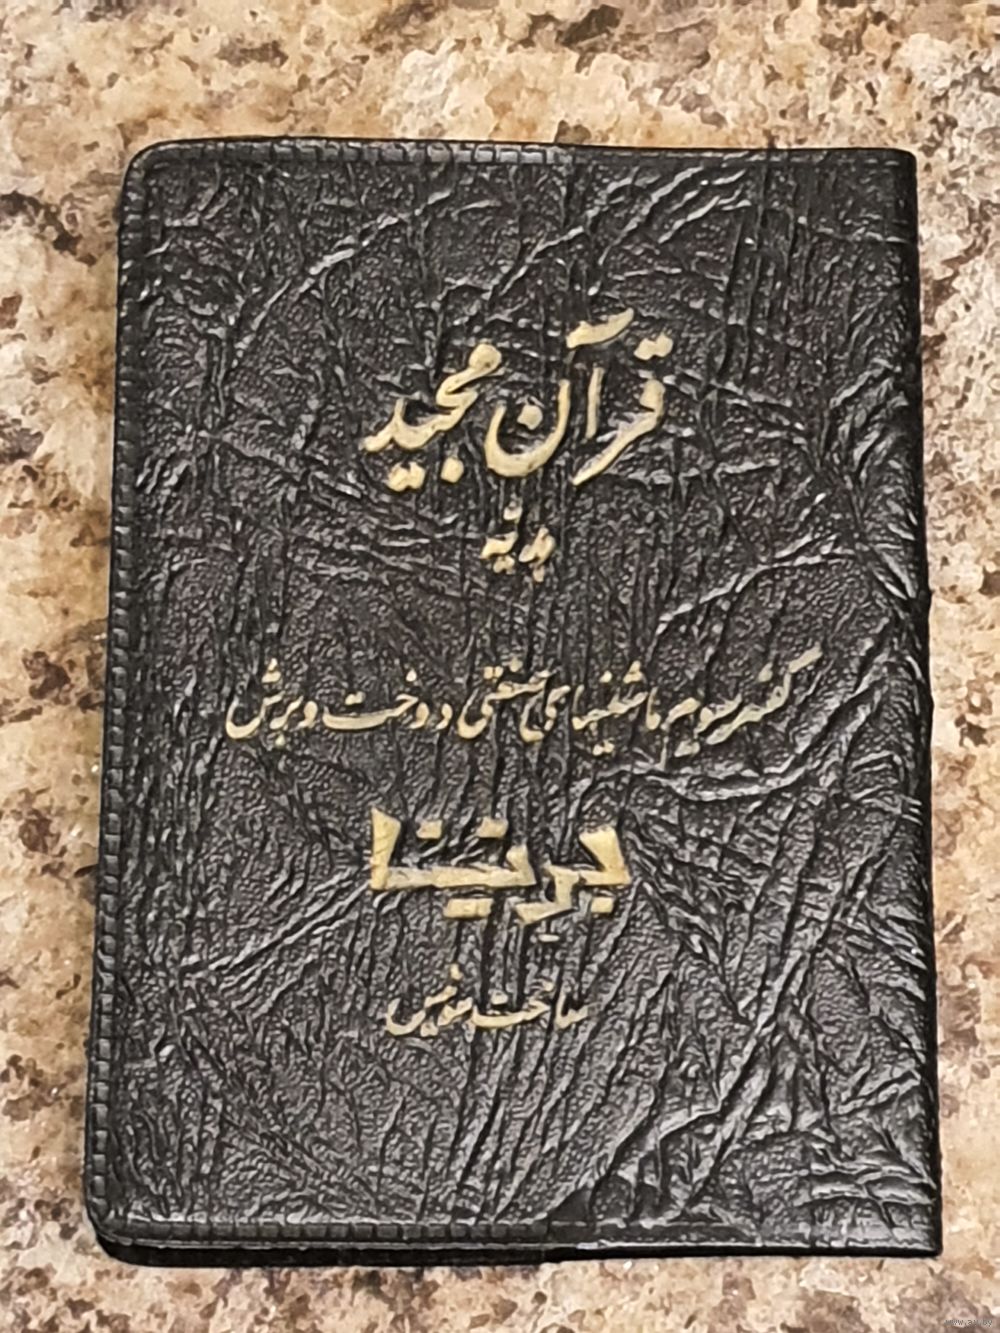 قرآن مجید
هدیه
کنسرسیوم ماشینهای صنعتی دوخت و برش
برنینا
ساخت سویس